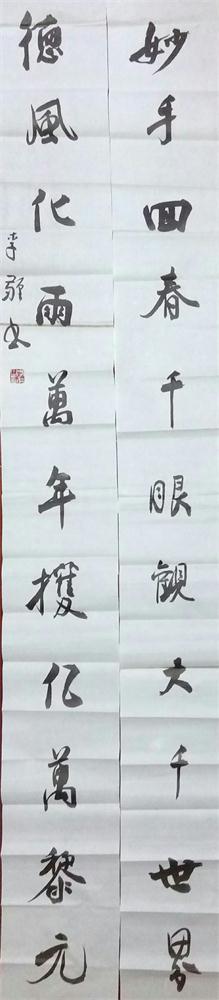 妙手回春千眼觀大千世界
德風化雨萬年擭亿萬黎元
李
书